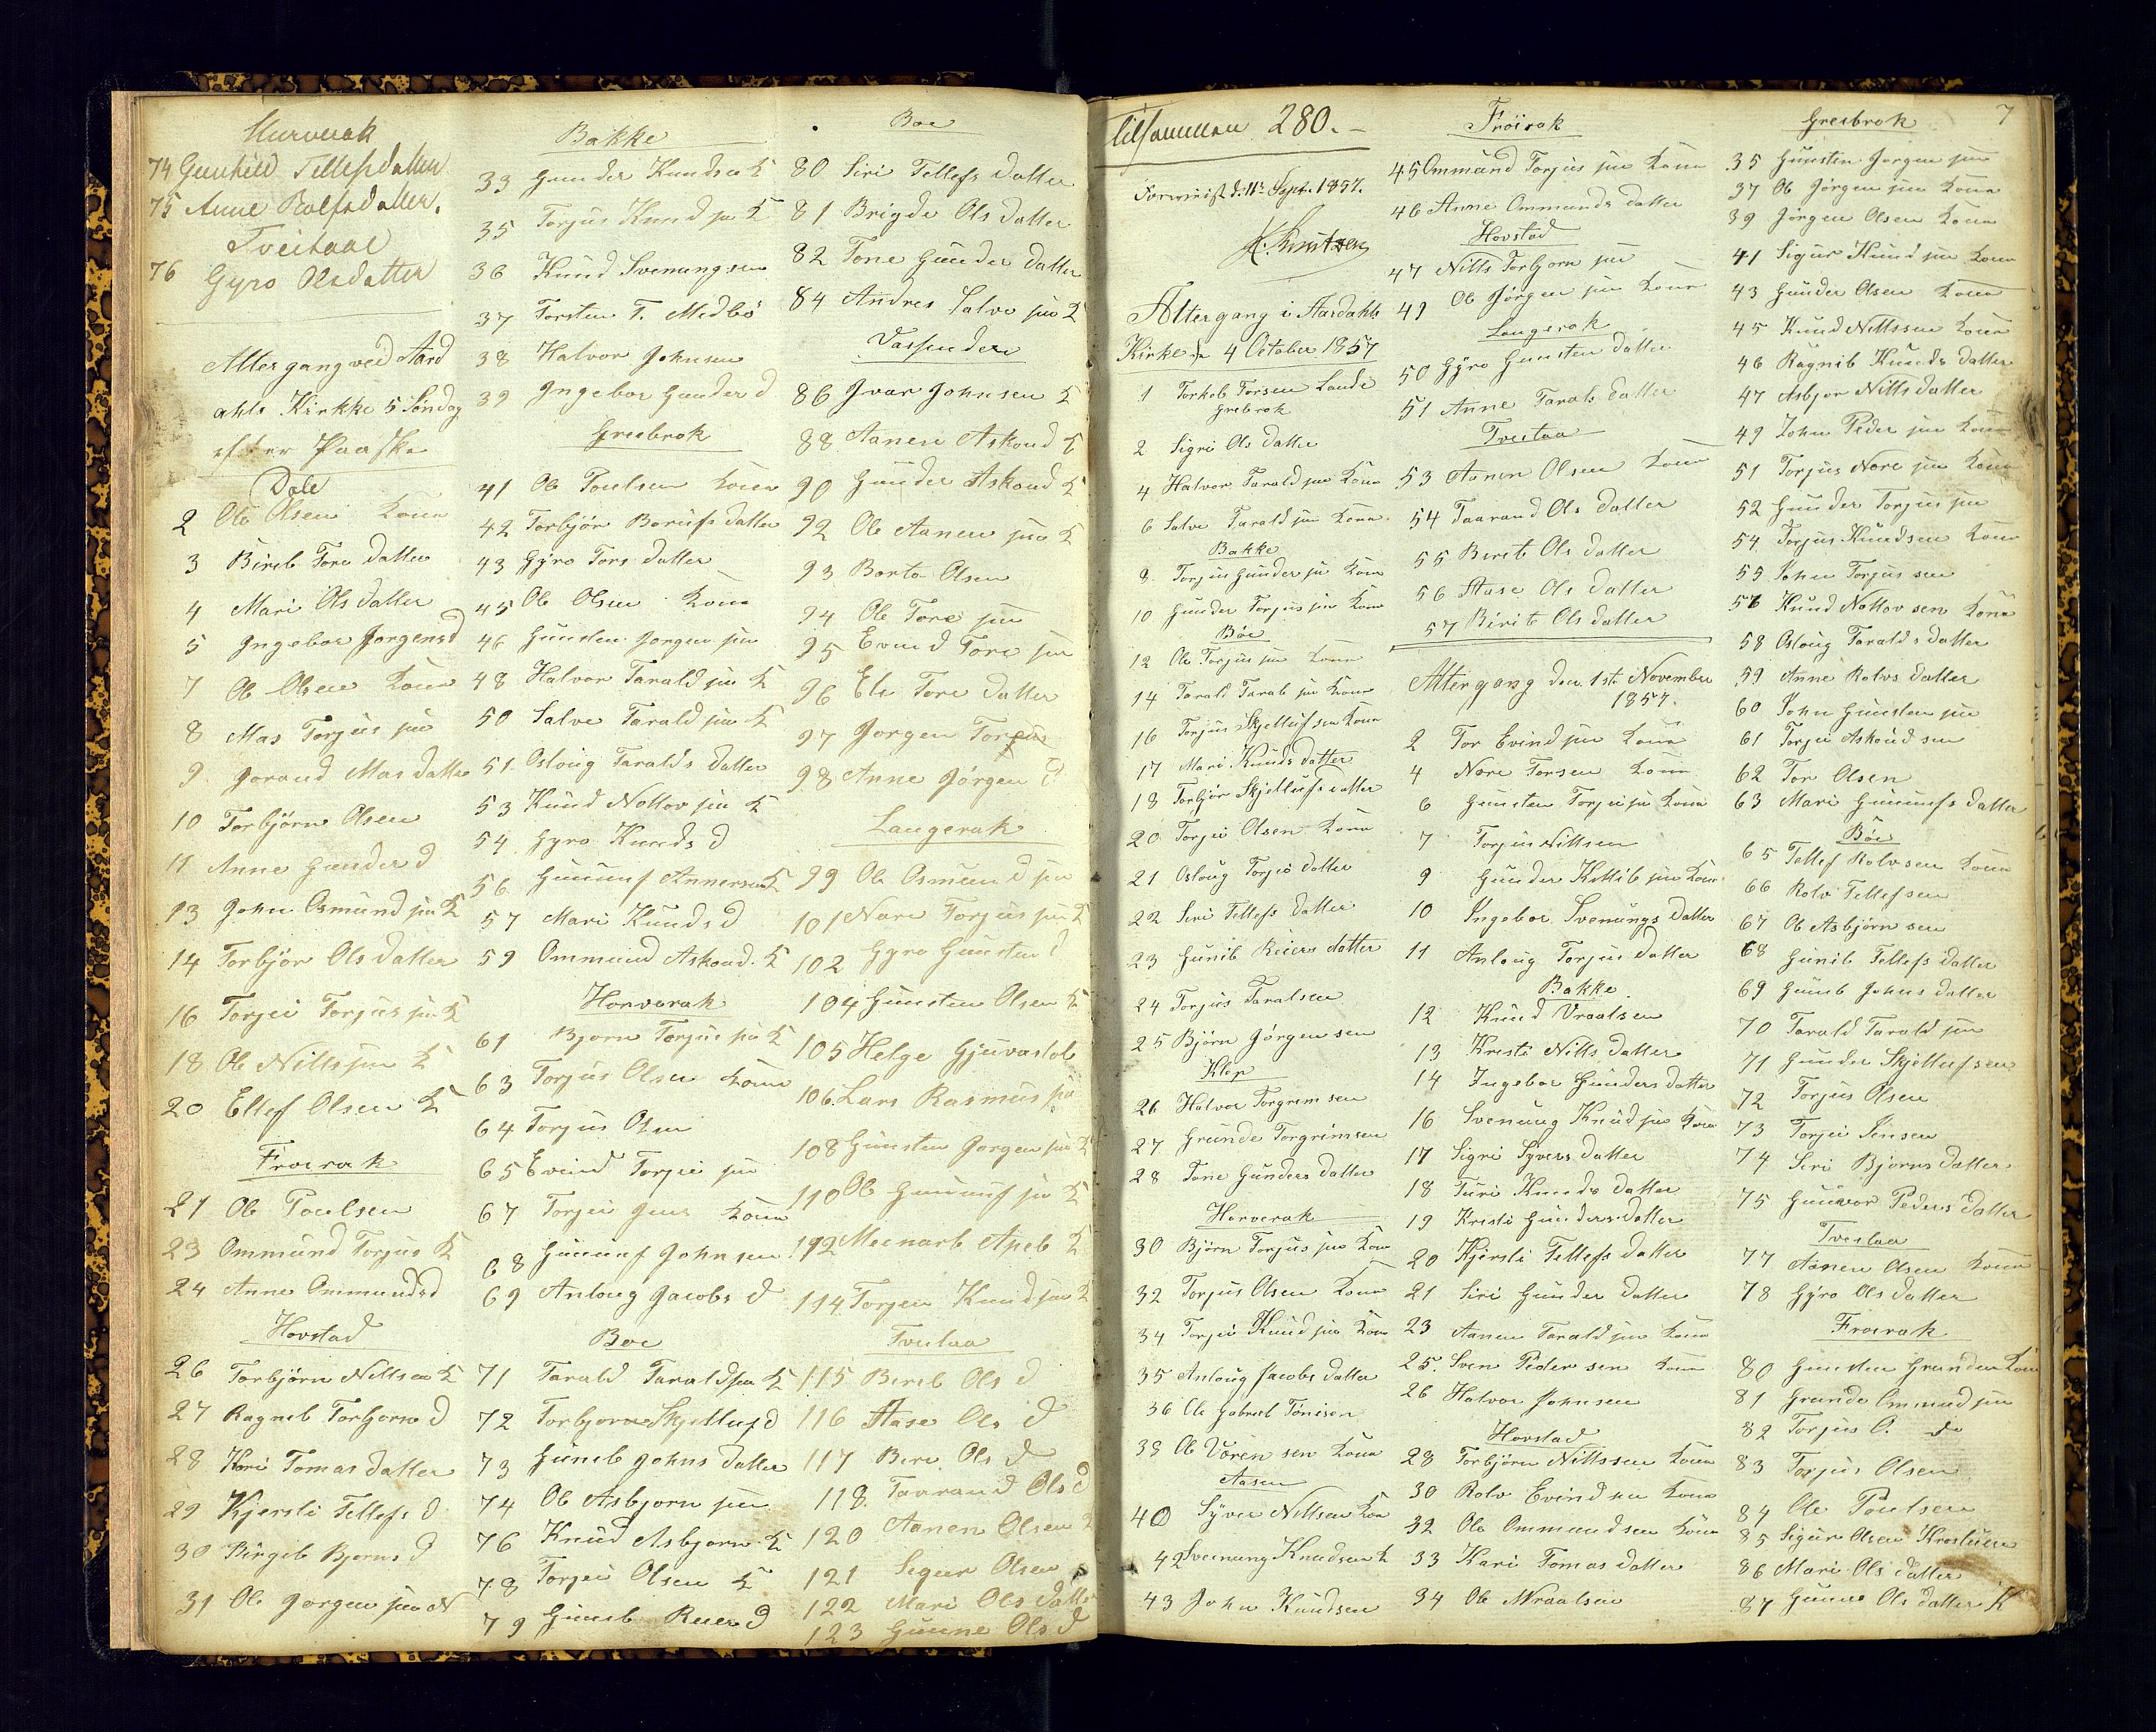 Hurverak
74 Gunhild Tellefsdatter
75 Anne Rolfsdatter.
Tveitaae
76 Gyro Olsdatter
Altergang ved Aard
ahls Kirkke 5 Søndag
efter Paaske
Dale
2 Ole Olsen Kone
3 Bireb Tore datter
4 Mari Ols datter
5 Ingebor Jorgens d
7 Ole Olsen Kone
8 Mas Torjus sen
9 Jorand Mas datter
10 Torbjörn Olsen
11 Anne Gunder d
13 John Osmund sen K
14 Torbjör Ols datter
16 Torjei Torjus sen K
18 Ole Nills sen K
20 Ellef Olsen K
Froirak
21 Ole Poulsen
23 Ommund Torjus K
24 Anne Ommunds d
Hovstad
26 Torbjörn Nillsen K
27 Ragneb Torbjorn d
28 Kari Tomas datter
29 Kjersti Tellefs d
30 Birgib Bjorns d
31 Ole Jorgen sen N
Bakke
33 Gunder Knudsen K
35 Torjus Knud sen K
36 Knud Svenungsen
37 Torsten T. Medbö
38 Halvor Johnsen
39 Ingebor Gunder d
Greibrok
41 Ole Poulsen Kone
42 Torbjör Borufs datter
43 Gyro Tors datter
45 Ole Olsen Kone
46 Gunsten Jorgen sen
48 Halvor Tarald sen K
50 Salve Tarald sen K
51 Osloug Taralds datter
53 Knud Nottov sen K
54 Gyro Knuds d
56 Gunuuf Annersen K
57 Mari Knuds d
59 Ommund Askoud. K
Horverak
61 Bjorn Torjus sen K
63 Torjus Olsen Kone
64 Torjus Olsen
65 Evind Torjei sen
67 Torjei Jens Kone
68 Gunuuf Johnsen
69 Anloug Jacobs d
Boe
71 Tarald Tarald sen K
72 Torbjorn Skjellufs d
73 Guneb Johns datter
74 Ole Asbjorn sen
76 Knud Asbjorn K
78 Torjei Olsen K
79 Guneb Reier d
Boe
80 Siri Tellefs datter
81 Brigde Ols datter
82 Tone Gunder datter
84 Andres Salve sen K
Vassenden
86 Ivar Johnsen K
88 Aanen Askoud K
90 Gunder Askoud K
92 Ole Aanen sen K
93 Borta Olsen
94 Ole Tore sen
95 Evind Tore sen
96 Els Tore datter
97 Jorgen Torsen
98 Anne Jörgen d
Langerak
99 Ole Osmund sen
101 Nore Torjus sen K
102 Gyro Gunsten d
104 Gunsten Olsen K
105 Helge Gjuvaslol
106. Lars Rasmus sen
108 Gunsten Jorgen sen K
110 Ole Gunuuf sen K
112 Meenart Apeb K
114 Torjen Knud sen K
Tveitaa
115 Bereb Ols d
116 Aase Ols d
117 Bere Ols d
118 Taarand Ols d
120 Aanen Olsen K
121 Segur Olsen
122 Mari Ols datter
123 Gunne Ols d
tilsammen 280.
Forevrist d. 11te Sept. 1857.
K. Knutzen
Altergang i Aardahls
Kirke den 4 October 1857
1 Torkeb Torsen Lande
Grebrok
2 Sigri Ols datter
4 Halvor Tarald sen Kone
6 Salve Tarald sen Kone
Bakke
8 Torjus Gunder sen Kone
10 Gunder Torjus sen Kone
Böe
12 Ole Torjus sen Kone
14 Tarald Tarab sen Kone
16 Torjus Skjelluf sen Kone
17 Mari Knuds datter
18 Torbjör Skjellufs datter
20 Torjei Olsen Kone
21 Osloug Torjei datter
22 Siri Tellefs datter
23 Gunib Reiers datter
24 Torjus Taralsen
25 Björn Jörgensen
Klep
26 Halvor Torgrim sen
27 Grunde Torgrimsen
28 Tone Gunders datter
Horverak
30 Björn Torjus sen Kone
32 Torjus Olsen Kone
34 Torjei Knud sen Kone
35 Anloug Jacobs datter
36 Ole Gabriel Tönisen
38 Ole Vören sen Kone
Aasen
40 Syver Nillsen Kon
42 Svenung Knudsen K
43 John Knudsen
Fröirak
45 Ommund Torjus sen Kone
46 Anne Ommunds datter
Hovstad
47 Nills Torbjorn sen
49 Ole Jörgen sen Kone
Langerak
50 Gyro Gunsten datter
51 Anne Tarals datter
Tveitaa
53 Aanen Olsen Kone
54 Taarand Ols datter
55 Bereb Ols datter
56 Aase Ols datter
57 Birit Ols datter
Altergang den 1ste November
1857.
2 Tor Evind sen Kone
4 Nore Torsen Kone
6 Gunsten Torjei sen Kone
7 Torjus Nillsen
9 Gunder Kittib sen Kone
10 Ingebor Svenungs datter
11 Anloug Torjus datter
Bakke
12 Knud Vraalsen
13 Kristi Nills datter
14 Ingebor Gunders datter
16 Svenung Knud sen Kone
17 Sigri Syvers datter
18 Turi Knuds datter
19 Kristi Gunders datter
20 Kjersti Tellefs datter
21 Siri Gunder datter
23 Aanen Tarald sen Kone
25. Sven Peder sen Kone
26 Halvor Johnsen
Hovstad
28 Torbjörn Nillssen Kone
30 Rolv Evind sen Kone
32 Ole Ommundsen Kone
33 Kari Tomas datter
34 Ole Nraalsen
Greibrok 7
35 Gunsten Jorgen sen
37 Ole Jörgen sen Kone
39 Jörgen Olsen Kone
41 Sigur Knud sen Kone
43 Gunder Olsen Kone
45 Knud Nillssen Kone
46 Ragnib Knuds datter
47 Asbjor Nills datter
49 John Peder sen Kone
51 Torjus Nore sen Kone
52 Gunder Torjus sen
54 Torjus Knudsen Kone
55 John Torjus sen
57 Knud Nottov sen Kone
58 Osloug Taralds datter
59 Anne Rolvs datter
60 John Gunsten sen
61 Torjei Askoud sen
62 Tor Olsen
63 Mari Gunuufs datter
Böe
65 Tellef Rolvsen Kone
66 Rolv Tellefsen
67 Ole Asbjörn sen
68 Gunib Tellefs datter
69 Gunib Johns datter
70 Tarald Tarald sen
71 Gunder Skjellufsen
72 Torjus Olsen
73 Torjei Jensen
74 Siri Bjorns datter
75 Gunvor Peders datter
Tveitaa
77 Aanen Olsen Kone
78 Gyro Ols datter
Froirak
80 Gunsten Grunden Kone
81 Grunde Ommund sen
82 Torjus O. do
83 Torjus Olsen
84 Ole Poulsen
85 Sigur Olsen
86 Mari Ols datter
87 Gunne Ols datter K